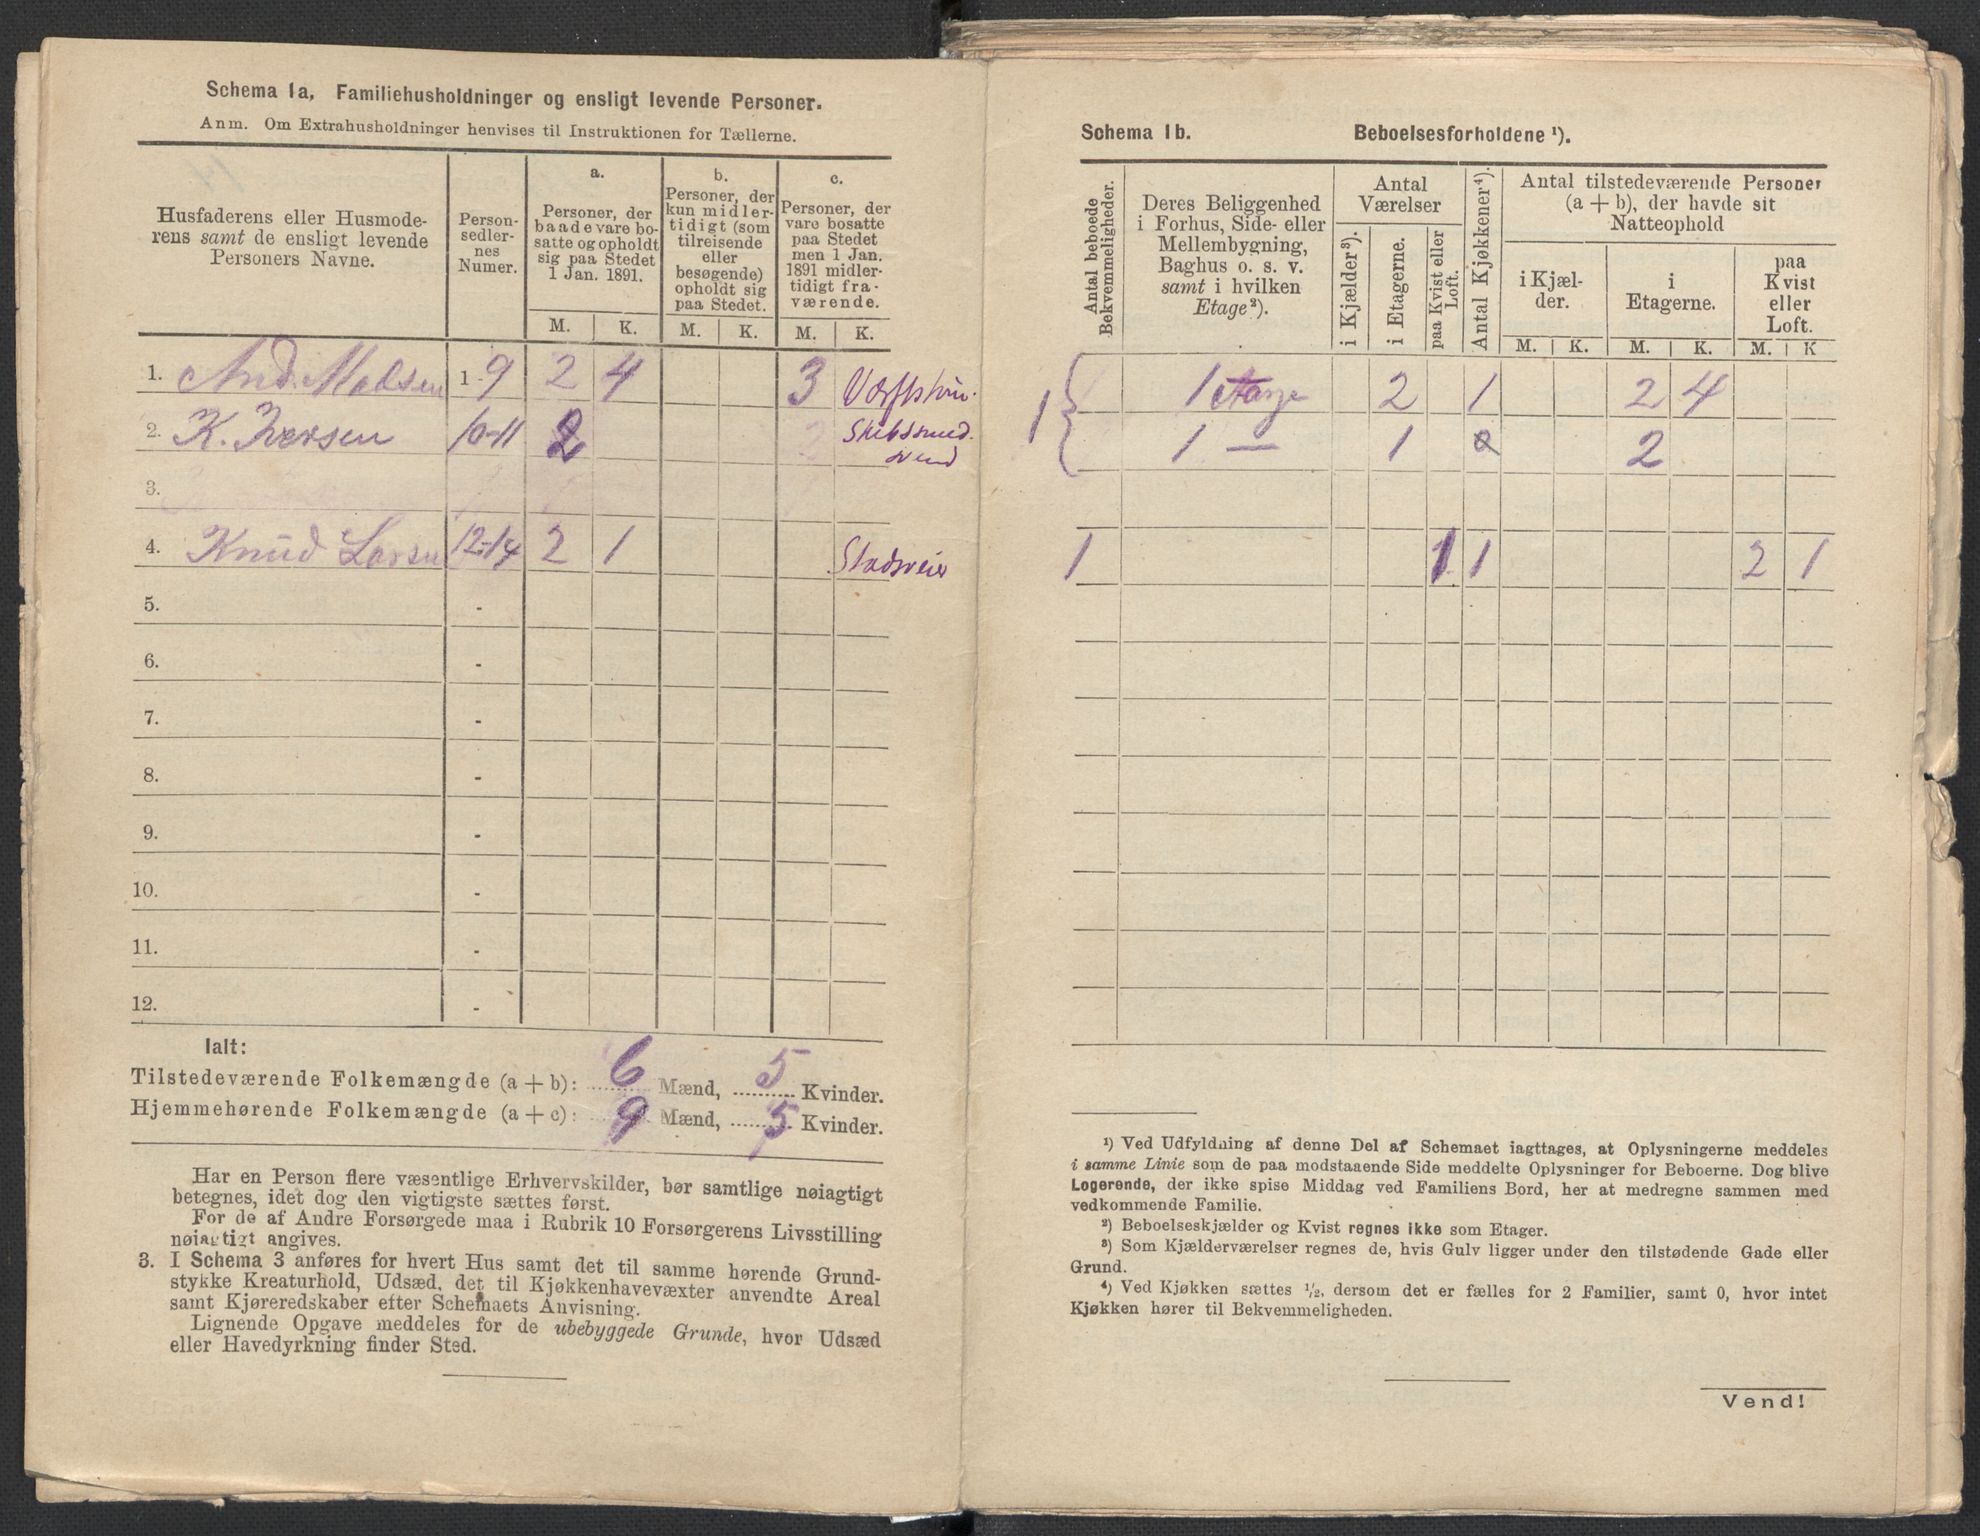 Schema 1a, Familiehusholdninger og ensligt levende Personer.
Anm. Om Extrahusholdninger henvises til Instruktionen for Tællerne.
Husfaderens eller Husmode-
rens samt de ensligt levende
Personers Navne.
Person-
sedler-
nes
Numer.
a.
Personer, der
baade vare bo-
satte og opholdt
sig paa Stedet
1 Jan. 1891.
b.
Personer, der
kun midler-
tidigt (som
tilreisende
eller
besøgende)
opholdt sig
paa Stedet.
c.
Personer, der
vare bosatte
paa Stedet
men 1 Jan.
1891 midler-
tidigt fra-
værende.
M. K. M. K. M. K.
1. And. Madsen 1-9 2 4 3
2. K. Iversen 10-11 2 Skibssmed.
svend
3.
4. Knud Larsen 12-14 2 1 Stadsveier
5. -
6. -
7. -
8. -
9. -
10. -
11. -
12. -
Ialt:
Tilstedeværende Folkemængde (a + b): 6 Mænd, 5 Kvinder.
Hjemmehørende Folkemængde (a + c): 9 Mænd, 5 Kvinder.
Har en Person flere væsentlige Erhvervskilder, bør samtlige nøiagtigt
betegnes, idet dog den vigtigste sættes først.
For de af Andre Forsørgede maa i Rubrik 10 Forsørgerens Livsstilling
nøiagtigt angives.
3. I Schema 3 anføres for hvert Hus samt det til samme hørende Grund-
stykke Kreaturhold, Udsæd, det til Kjøkkenhavevæxter anvendte Areal
samt Kjøreredskaber efter Schemaets Anvisning.
Lignende Opgave meddeles for de ubebyggede Grunde, hvor Udsæd
eller Havedyrkning finder Sted.
Schema 1b. Beboelsesforholdene ¹).
Antal beboede
Bekvemmeligheder.
Deres Beliggenhed
i Forhus, Side- eller
Mellembygning,
Baghus o. s. v.
samt i hvilken
Etage²).
Antal
Værelser
i Kjælder³).
i Etagerne.
paa Kvist eller
Loft.
Antal Kjøkkener⁴).
Antal tilstedeværende Personer
(a + b), der havde sit
Natteophold
i Kjæl-
der.
i
Etagerne.
paa
Kvist
eller
Loft.
M. K. M. K. M. K
1 1 Etage 2 1 2 4
1 — 1 0 2
1 1 1 2 1
¹) Ved Udfyldning af denne Del af Schemaet iagttages, at Oplysningerne meddeles
i samme Linie som de paa modstaaende Side meddelte Oplysninger for Beboerne. Dog blive
Logerende, der ikke spise Middag ved Familiens Bord, her at medregne sammen med
vedkommende Familie.
²) Beboelseskjælder og Kvist regnes ikke som Etager.
³) Som Kjælderværelser regnes de, hvis Gulv ligger under den tilstødende Gade eller
Grund.
⁴) Ved Kjøkken sættes ½, dersom det er fælles for 2 Familier, samt 0, hvor intet
Kjøkken hører til Bekvemmeligheden.
Vend!